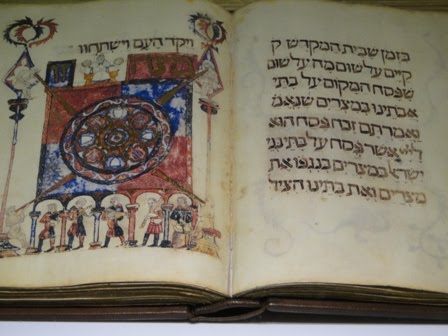 בזמן שבית המקדש ק
קיים על שום מה על שום
שפסח המקום על בתי
אבתינו במצרים שנאמ
ואמרתם זבח פסח הוא
אשר פסח על בתי בני
ישראל במצרים בנגפו את
מצרים ואת בתינו הציל
ויקד העם וישתחוו